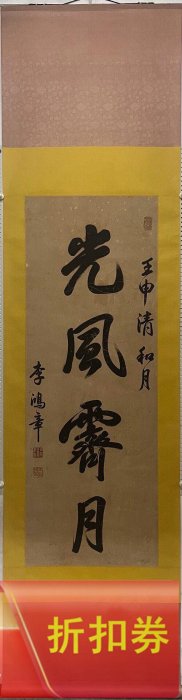 壬申清和月
光風霽月
李鴻章
折扣券